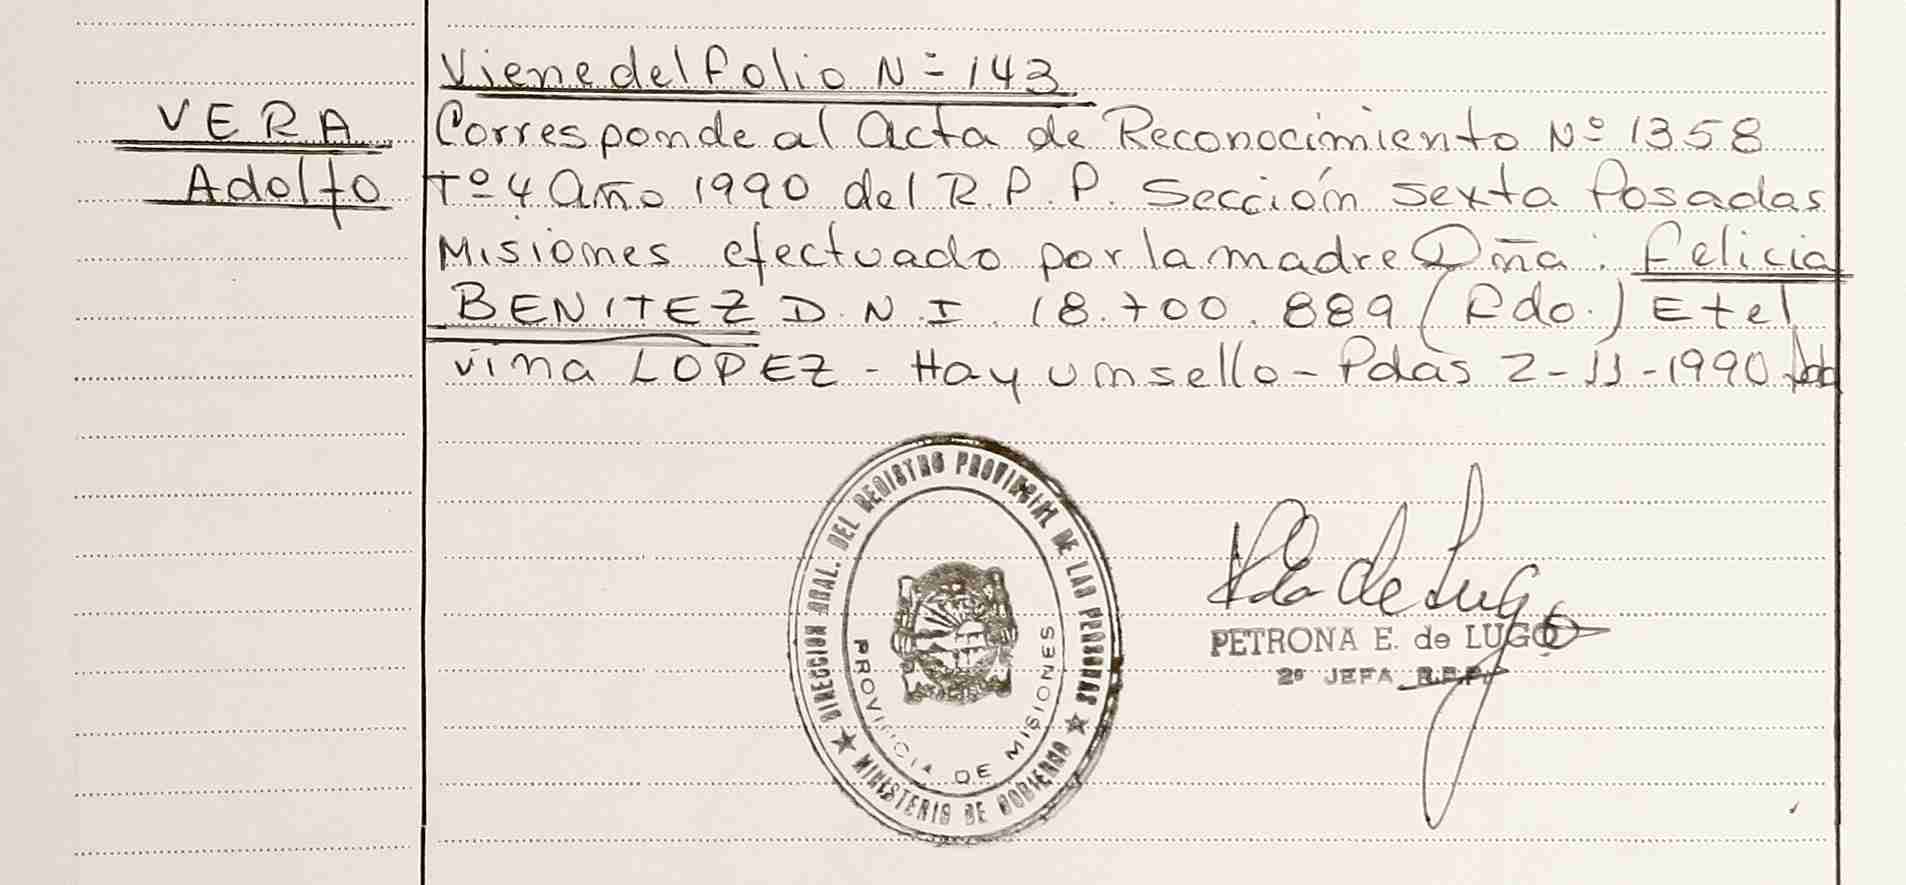 Viene del folio Nº 143
VERA
Adolfo
Corresponde al Acta de Reconocimiento Nº 1358
Tº 4 Año 1990 del R.P.P. Sección Sexta Posadas
Misiones efectuado por la madre Dña. Felicia
BENITEZ D.N.I. 18.700.889 (Fdo.) Etel
vina LOPEZ - Hay un sello - Pdas 2-11-1990
DIRECCION GRAL. DEL REGISTRO PROVINCIAL DE LAS PERSONAS
MINISTERIO DE GOBIERNO
PROVINCIA DE MISIONES
de Lugo
PETRONA E. de LUGO
2º JEFA R.P.P.